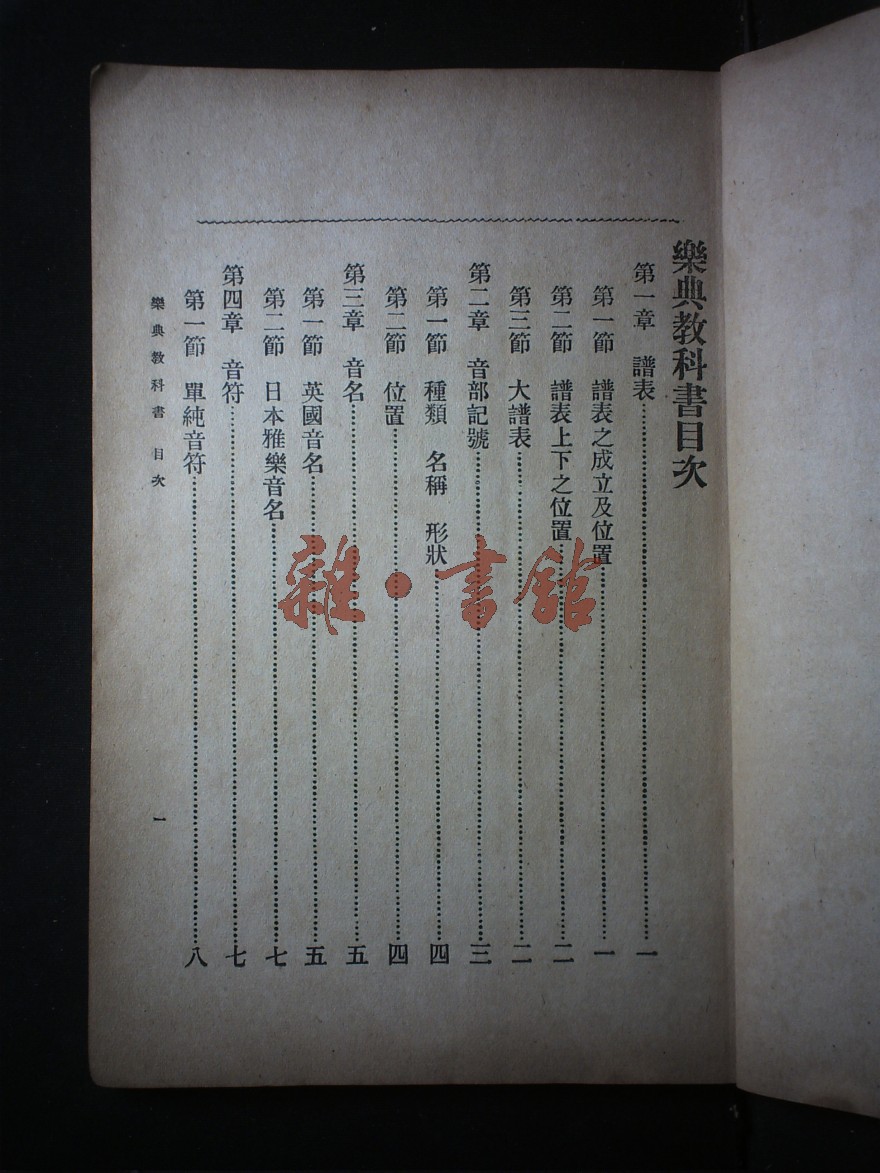 樂典教科書目次
第一章 譜表……一
第一節 譜表之成立及位置……一
第二節 譜表上下之位置……二
第三節 大譜表……二
第二章 音部記號……三
第一節 種類 名稱 形狀……四
第二節 位置……四
第三章 音名……五
第一節 英國音名……五
第二節 日本雅樂音名……七
第四章 音符……七
第一節 單純音符……八
樂典教科書 目次 一
雜·書館